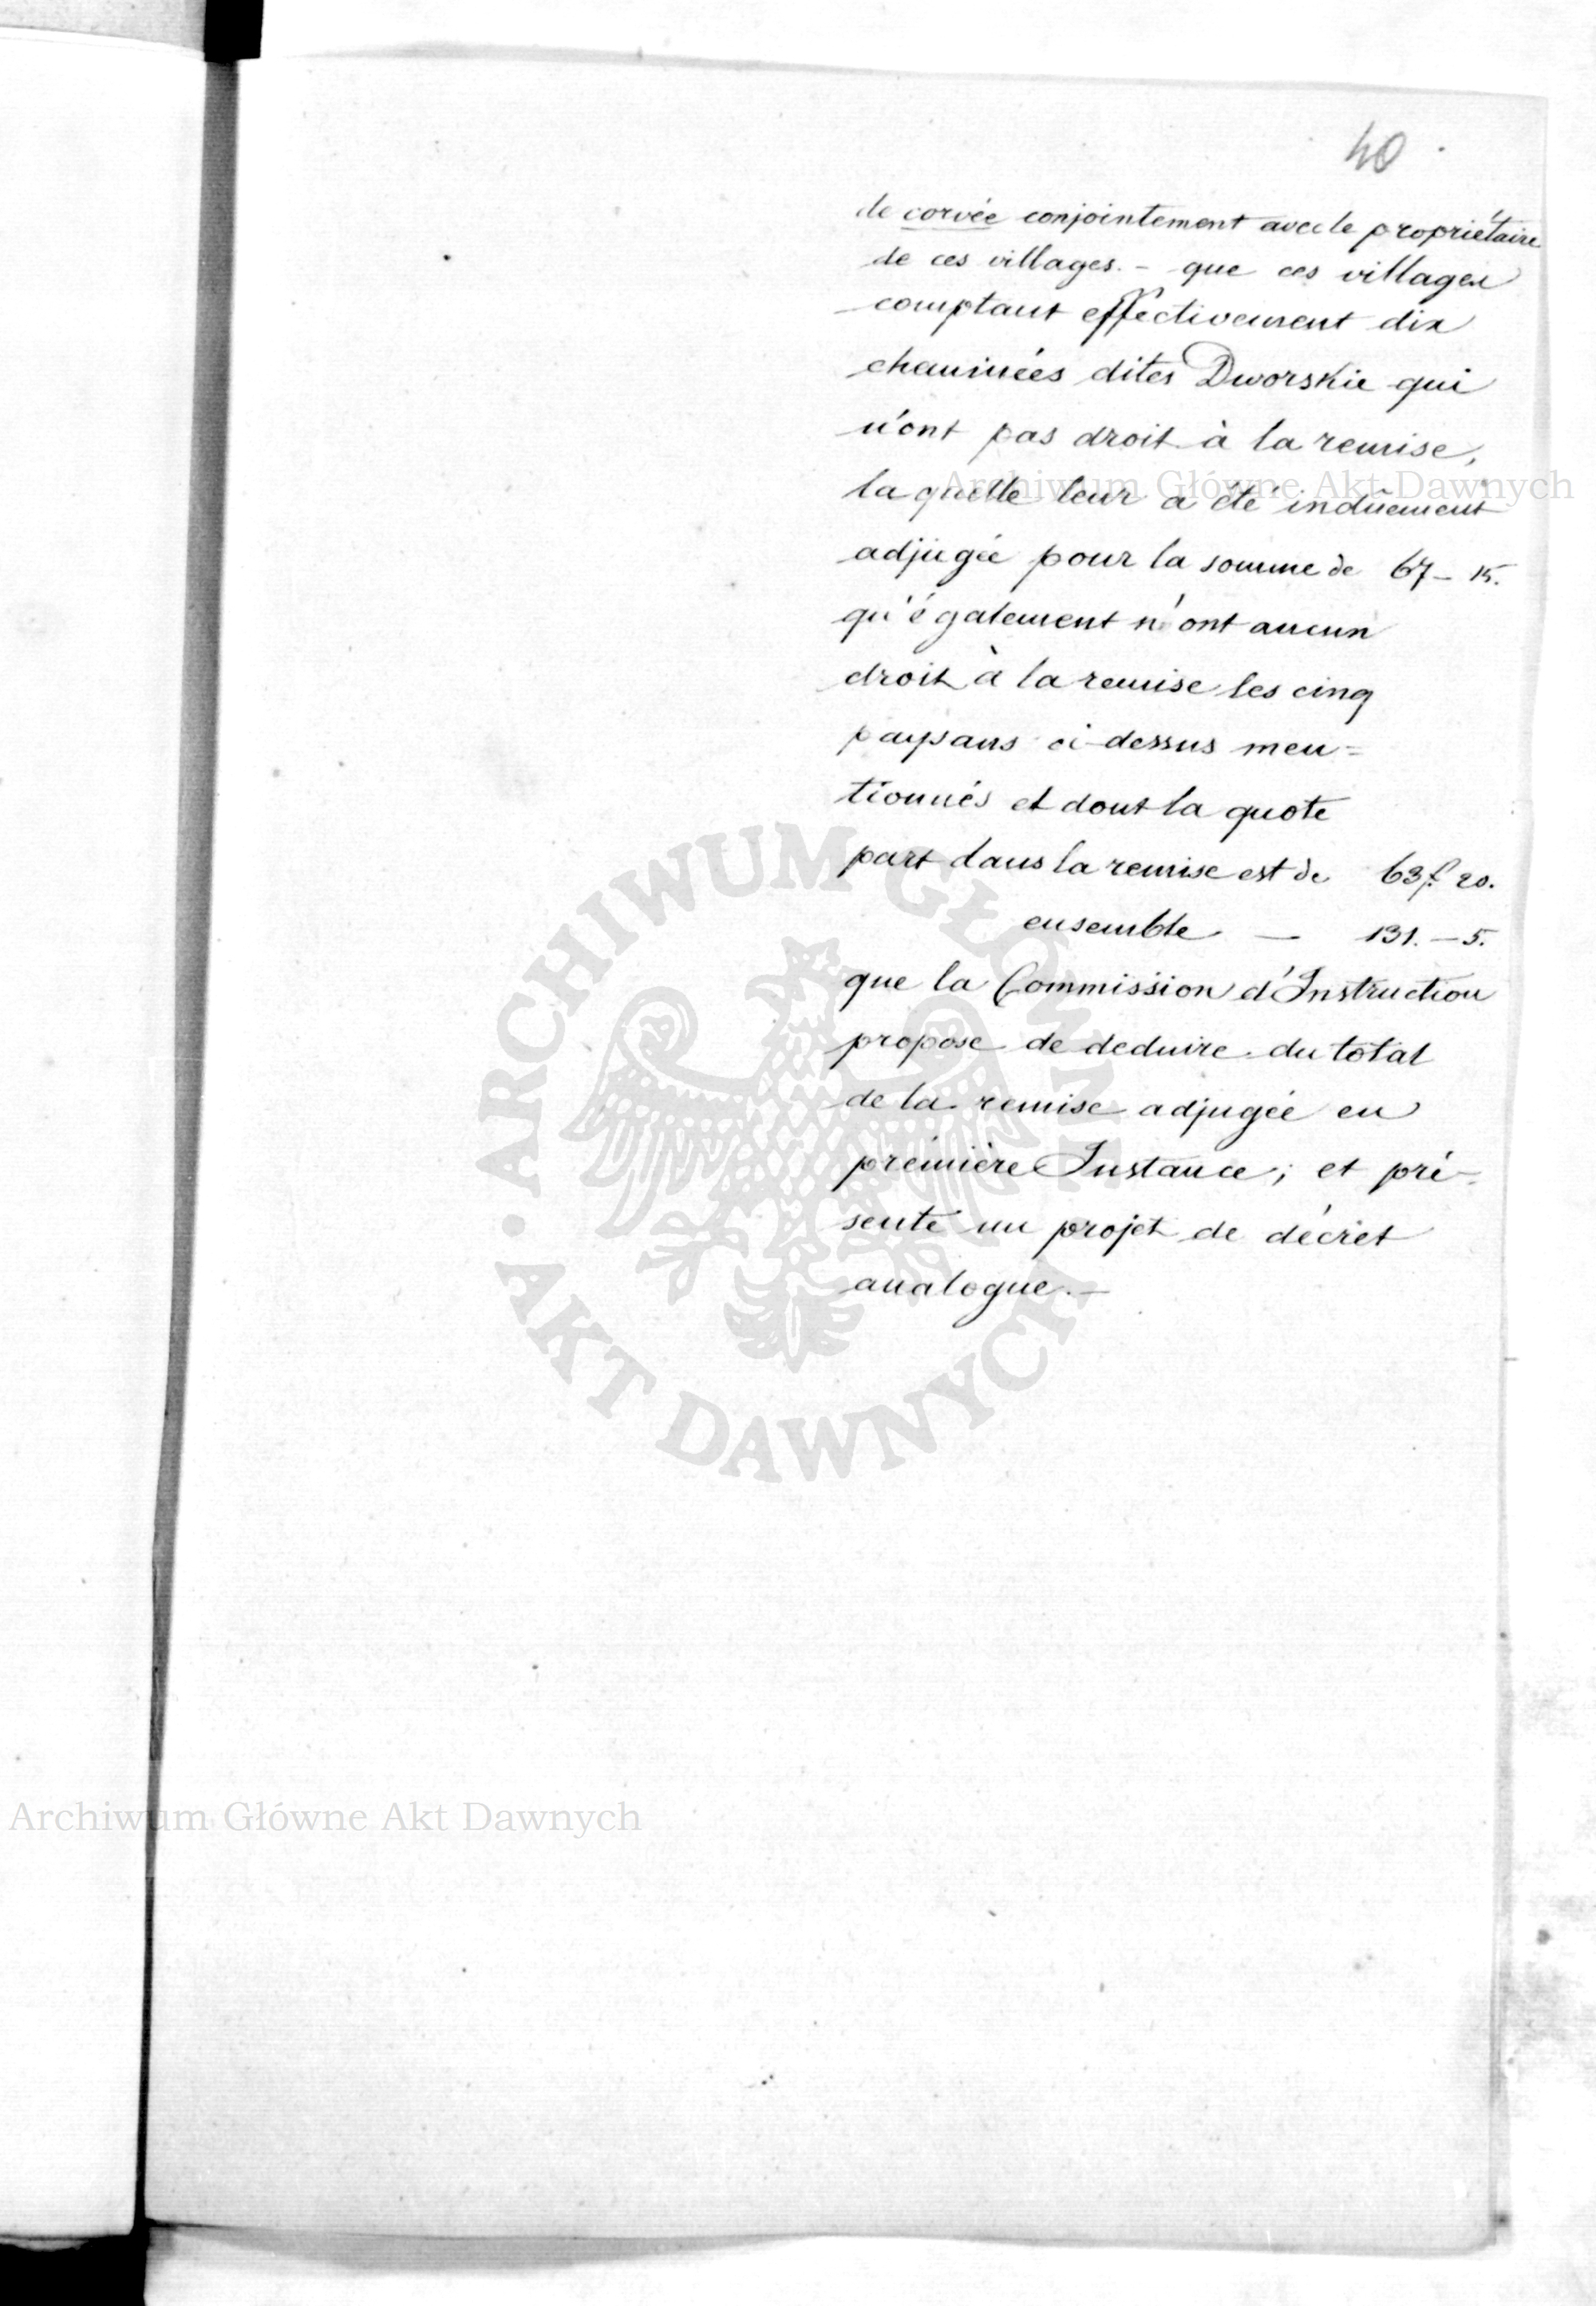 40
de corvée conjointement avec le propriétaire
de ces villages. - que ces villages
comptant effectivement dix
cheminées dites Dworskie qui
n'ont pas droit à la remise,
la quelle leur a été indûement
adjugée pour la somme de 67 - 15.
qu'également n'ont aucun
droit à la remise les cinq
paysans ci-dessus men=
tionnés et dont la quote
part dans la remise est de 63 f. 20.
ensemble — 131. - 5.
que la Commission d'Instruction
propose de deduire du total
de la remise adjugée en
première Instance; et pré-
sente un projet de décret
analogue. —
Archiwum Główne Akt Dawnych
ARCHIWUM GŁÓWNE • AKT DAWNYCH
Archiwum Główne Akt Dawnych